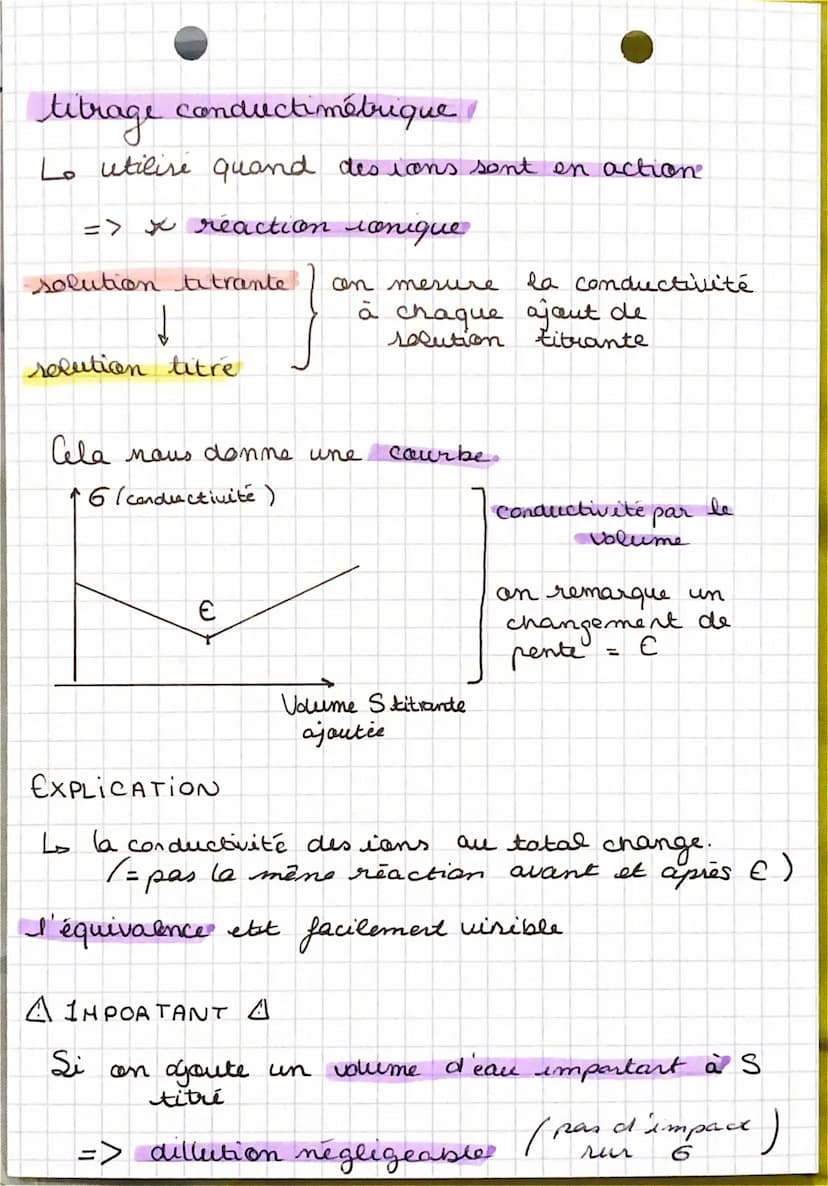 titrage conductimétrique
↳ utilisé quand des ions sont en action
=> réaction ionique
solution titrante
↓
solution titré
on mesure la conductivité
à chaque ajout de
solution titrante
Cela nous donne une courbe.
σ (conductivité)
E
Volume S titrante
ajoutée
conductivité par le
volume
on remarque un
changement de
pente = E
EXPLICATION
↳ la conductivité des ions au total change.
(= pas la même réaction avant et après E)
l'équivalence est facilement visible
⚠ IMPORTANT ⚠
Si on ajoute un volume d'eau important à S
titré
=> dillution négligeable (pas d'impact
sur σ)